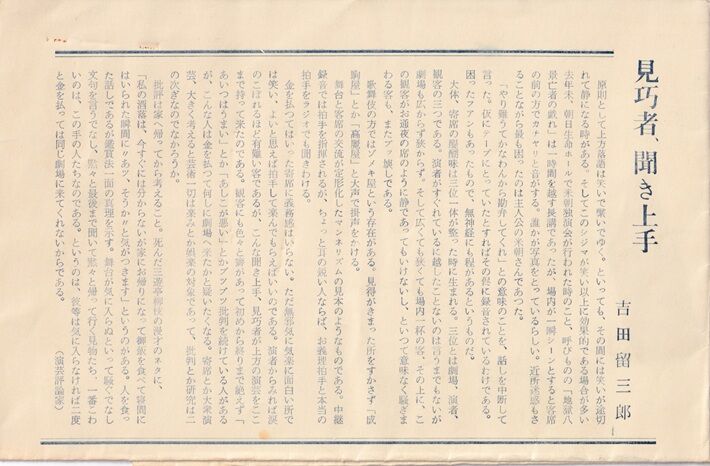 見巧者、聞き上手
吉田留三郎
原則として上方落語は笑いで繋いでゆく。といっても、その間には笑いが途切
れて静になる時がある。そしてこのシジマが笑い以上に効果的である場合が多い
去年末、朝日生命ホールで米朝独演会が行われた時のこと、呼びものの「地獄八
景亡者の戯れ」は一時間を越す長講であったが、場内が一瞬シーンとすると客席
の前の方でカチヤリと音がする。誰かが写真をとっているらしい。近所迷惑もさ
ることながら最も困ったのは主人公の米朝さんであつた。
「やり難うてかなわんから勘弁してくれ」との意味のことを、話しを中断して
言った。仮にテープにとっていたとすればその侭に録音されているわけである。
困ったフアンもあったもので、無神経にも程があるというものだ。
大体、寄席の醍醐味は三位一体が整った時に生まれる。三位とは劇場、演者、
観客の三つである。演者がすぐれているに越したことないのは言うまでもないが
劇場も広からず狭からず。そして広くても狭くても場内一杯の客。その上に、こ
の観客がお通夜の席のように静であってもいけないし、といつて意味なく騒ぎま
わる客も、またブッ壊しである。
歌舞伎の方ではゾメキ屋という存在がある。見得がきまった所をすかさず「成
駒屋」とか「高麗屋」と大声で掛声をかける。
舞台と客席の交流が定形化したマンネリズムの見本のようなものである。中継
録音では拍手を指揮されるが、ちょっと耳の鋭い人ならば、お義理拍手と本当の
拍手をラジオでも聞きわける。
金を払つてはいった寄席に義務感はいらない。ただ無邪気に気楽に面白い所で
は笑い、よいと思えば拍手して楽んでもらえばいいのである。演者からみれば涙
のこぼれるほど有難い客であるが、こんな聞き上手、見巧者が上方の演芸をここ
まで持って来たのである。観客にも色々と癖があって初めから終りまで絶えず「
あいつはうまい」とか「あしこが悪い」とかブツブツ批判を続けている人がある
が、こんな人は金を払つて何しに劇場へ来たかと疑いたくなる。寄席とか大衆演
芸、大きく考えると芸術一切は楽みとか娯楽の対象であって、批判とか研究は二
の次ぎなのでなかろうか。
批評は家へ帰ってから考えること。死んだ三遊亭柳枝の漫才のネタに、
「私の洒落は、今すぐには分からないが家にお帰りになって御飯を食べて寝間に
はいられた瞬間に〃あツ、そうか〃と気がつきます」というのがある。人を食っ
た話しであるが鑑賞法一面の真理を示す。舞台が気に入らぬといって騒ぐでなし
文句を言うでなし、黙々と最後まで聞いて黙々と帰って行く見物たち、一番こわ
いのは、この手の人たちなのである。というのは、彼等は気に入らなければ二度
と金を払っては同じ劇場に来てくれないからである。
（演芸評論家）